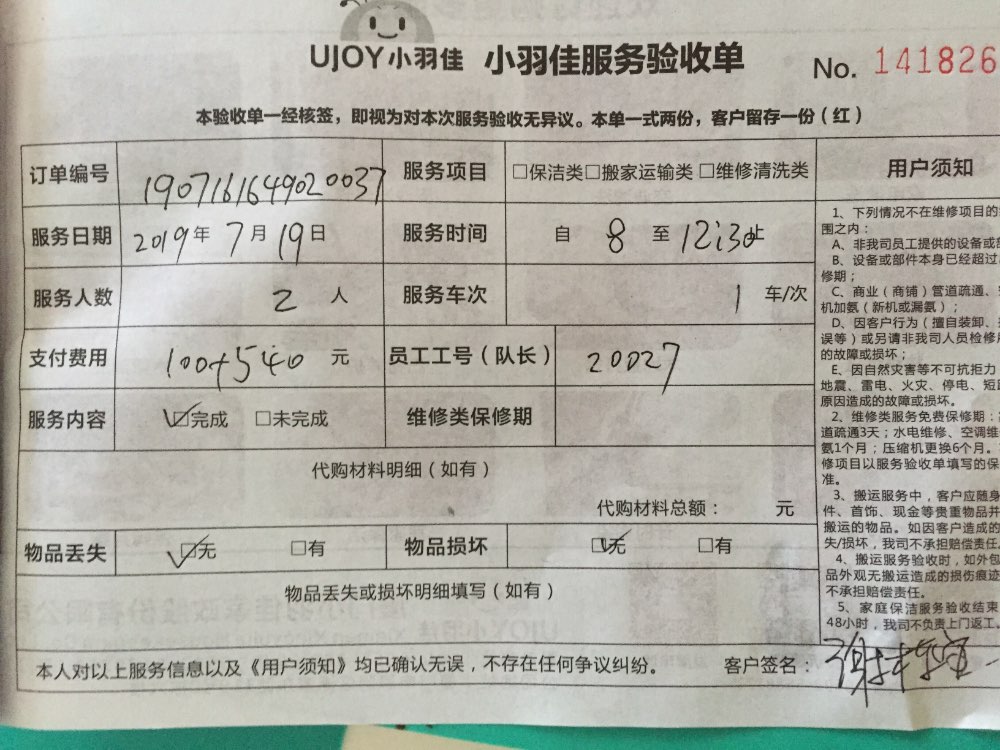 UJOY小羽佳 小羽佳服务验收单 No. 141826
本验收单一经核签，即视为对本次服务验收无异议。本单一式两份，客户留存一份（红）
订单编号 1907161649020037 服务项目 □保洁类□搬家运输类 □维修清洗类
服务日期 2019年 7月 19日 服务时间 自 8 至 12:30止
服务人数 2 人 服务车次 1 车/次
支付费用 100+540 元 员工工号（队长） 20027
服务内容 ☑完成 □未完成 维修类保修期
代购材料明细（如有）
代购材料总额： 元
物品丢失 ☑无 □有 物品损坏 ☑无 □有
物品丢失或损坏明细填写（如有）
本人对以上服务信息以及《用户须知》均已确认无误，不存在任何争议纠纷。 客户签名：
用户须知
1、下列情况不在维修项目的
围之内：
A、非我司员工提供的设备或
B、设备或部件本身已经超过
修期；
C、商业（商铺）管道疏通、
机加氨（新机或漏氨）；
D、因客户行为（擅自装卸、
误等）或另请非我司人员检修
的故障或损坏；
E、因自然灾害等不可抗拒力
地震、雷电、火灾、停电、短
原因造成的故障或损坏。
2、维修类服务免费保修期：
道疏通3天；水电维修、空调维
氨1个月；压缩机更换6个月。
修项目以服务验收单填写的保
准。
3、搬运服务中，客户应随身
件、首饰、现金等贵重物品并
搬运的物品。如因客户造成的
失/损坏，我司不承担赔偿责任。
4、搬运服务验收时，如外包
品外观无搬运造成的损伤痕迹
不承担赔偿责任。
5、家庭保洁服务验收结束
48小时，我司不负责上门返工。